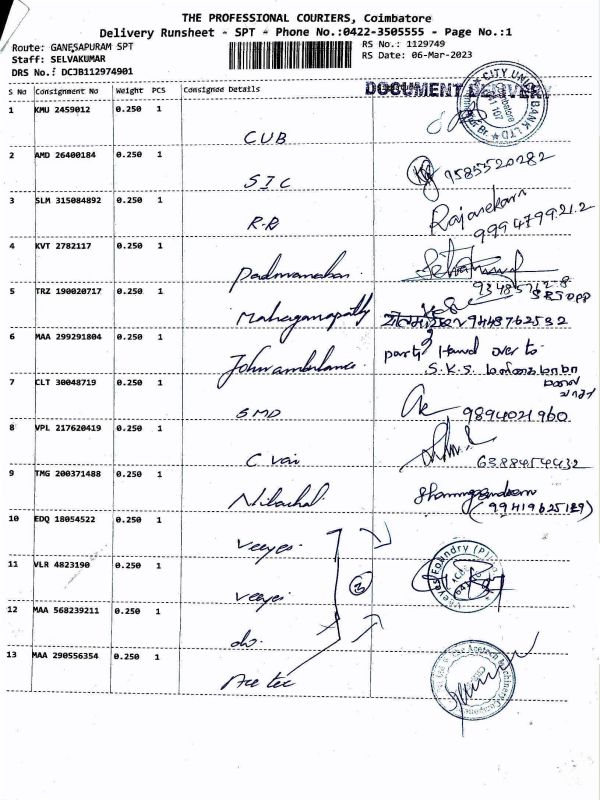 THE PROFESSIONAL COURIERS, Coimbatore
Delivery Runsheet - SPT - Phone No.:0422-3505555 - Page No.:1
Route: GANESAPURAM SPT
RS No.: 1129749
Staff: SELVAKUMAR
RS Date: 06-Mar-2023
DRS No.: DCJB112974901
S No Consignment No Weight PCS Consignee Details
DOCUMENT DELIVERY
CITY UNION BANK LTD
1 KMU 2459012 0.250 1
CUB
2 AMD 26400184 0.250 1
SIC
9585520282
3 SLM 315084892 0.250 1
R.B
Rajasekarn
9994799212
4 KVT 2782117 0.250 1
Padmanaban
5 TRZ 190020717 0.250 1
Mahaganapathy
9448762532
6 MAA 299291804 0.250 1
John ambulance
party Hand over to
S.K.S.
7 CLT 30048719 0.250 1
SMD
9894021960
8 VPL 217620419 0.250 1
C Vai
9 TMG 200371488 0.250 1
Nilachal
(99419625129)
10 EDQ 18054522 0.250 1
Veeyes
11 VLR 4823190 0.250 1
veeyes
3
Foundry (P)
12 MAA 568239211 0.250 1
do
13 MAA 290556354 0.250 1
Ace tec